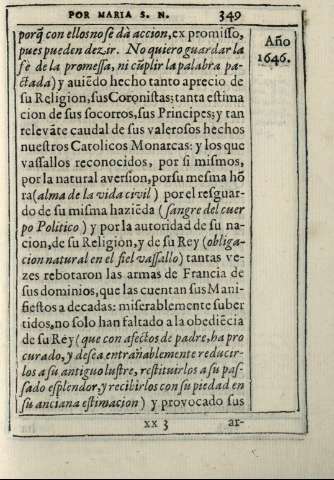 POR MARIA S. N. 349
Año
1646.
porq̃ con ellos no se dà accion, ex promisso,
pues pueden dezir. No quiero guardar la
fè de la promessa, ni cũplir la palabra pa-
ctada) y auiẽdo hecho tanto aprecio de
su Religion, sus Coronistas; tanta estima
cion de sus socorros, sus Principes; y tan
relevãte caudal de sus valerosos hechos
nuestros Catolicos Monarcas: y los que
vassallos reconocidos, por si mismos,
por la natural aversion, por su mesma hõ
ra (alma de la vida civil) por el resguar-
do de su misma haziẽda (sangre del cuer
po Politico) y por la autoridad de su na-
cion, de su Religion, y de su Rey (obliga-
cion natural en el fiel vassallo) tantas ve-
zes rebotaron las armas de Francia de
sus dominios, que las cuentan sus Mani-
fiestos a decadas: miserablemente suber
tidos, no solo han faltado a la obediẽcia
de su Rey (que con afectos de padre, ha pro
curado, y desea entrañablemente reducir-
los a su antiguo lustre, restituirlos a su pas-
sado esplendor, y recibirlos con su piedad en
su anciana estimacion) y provocado sus
xx 3 ar-